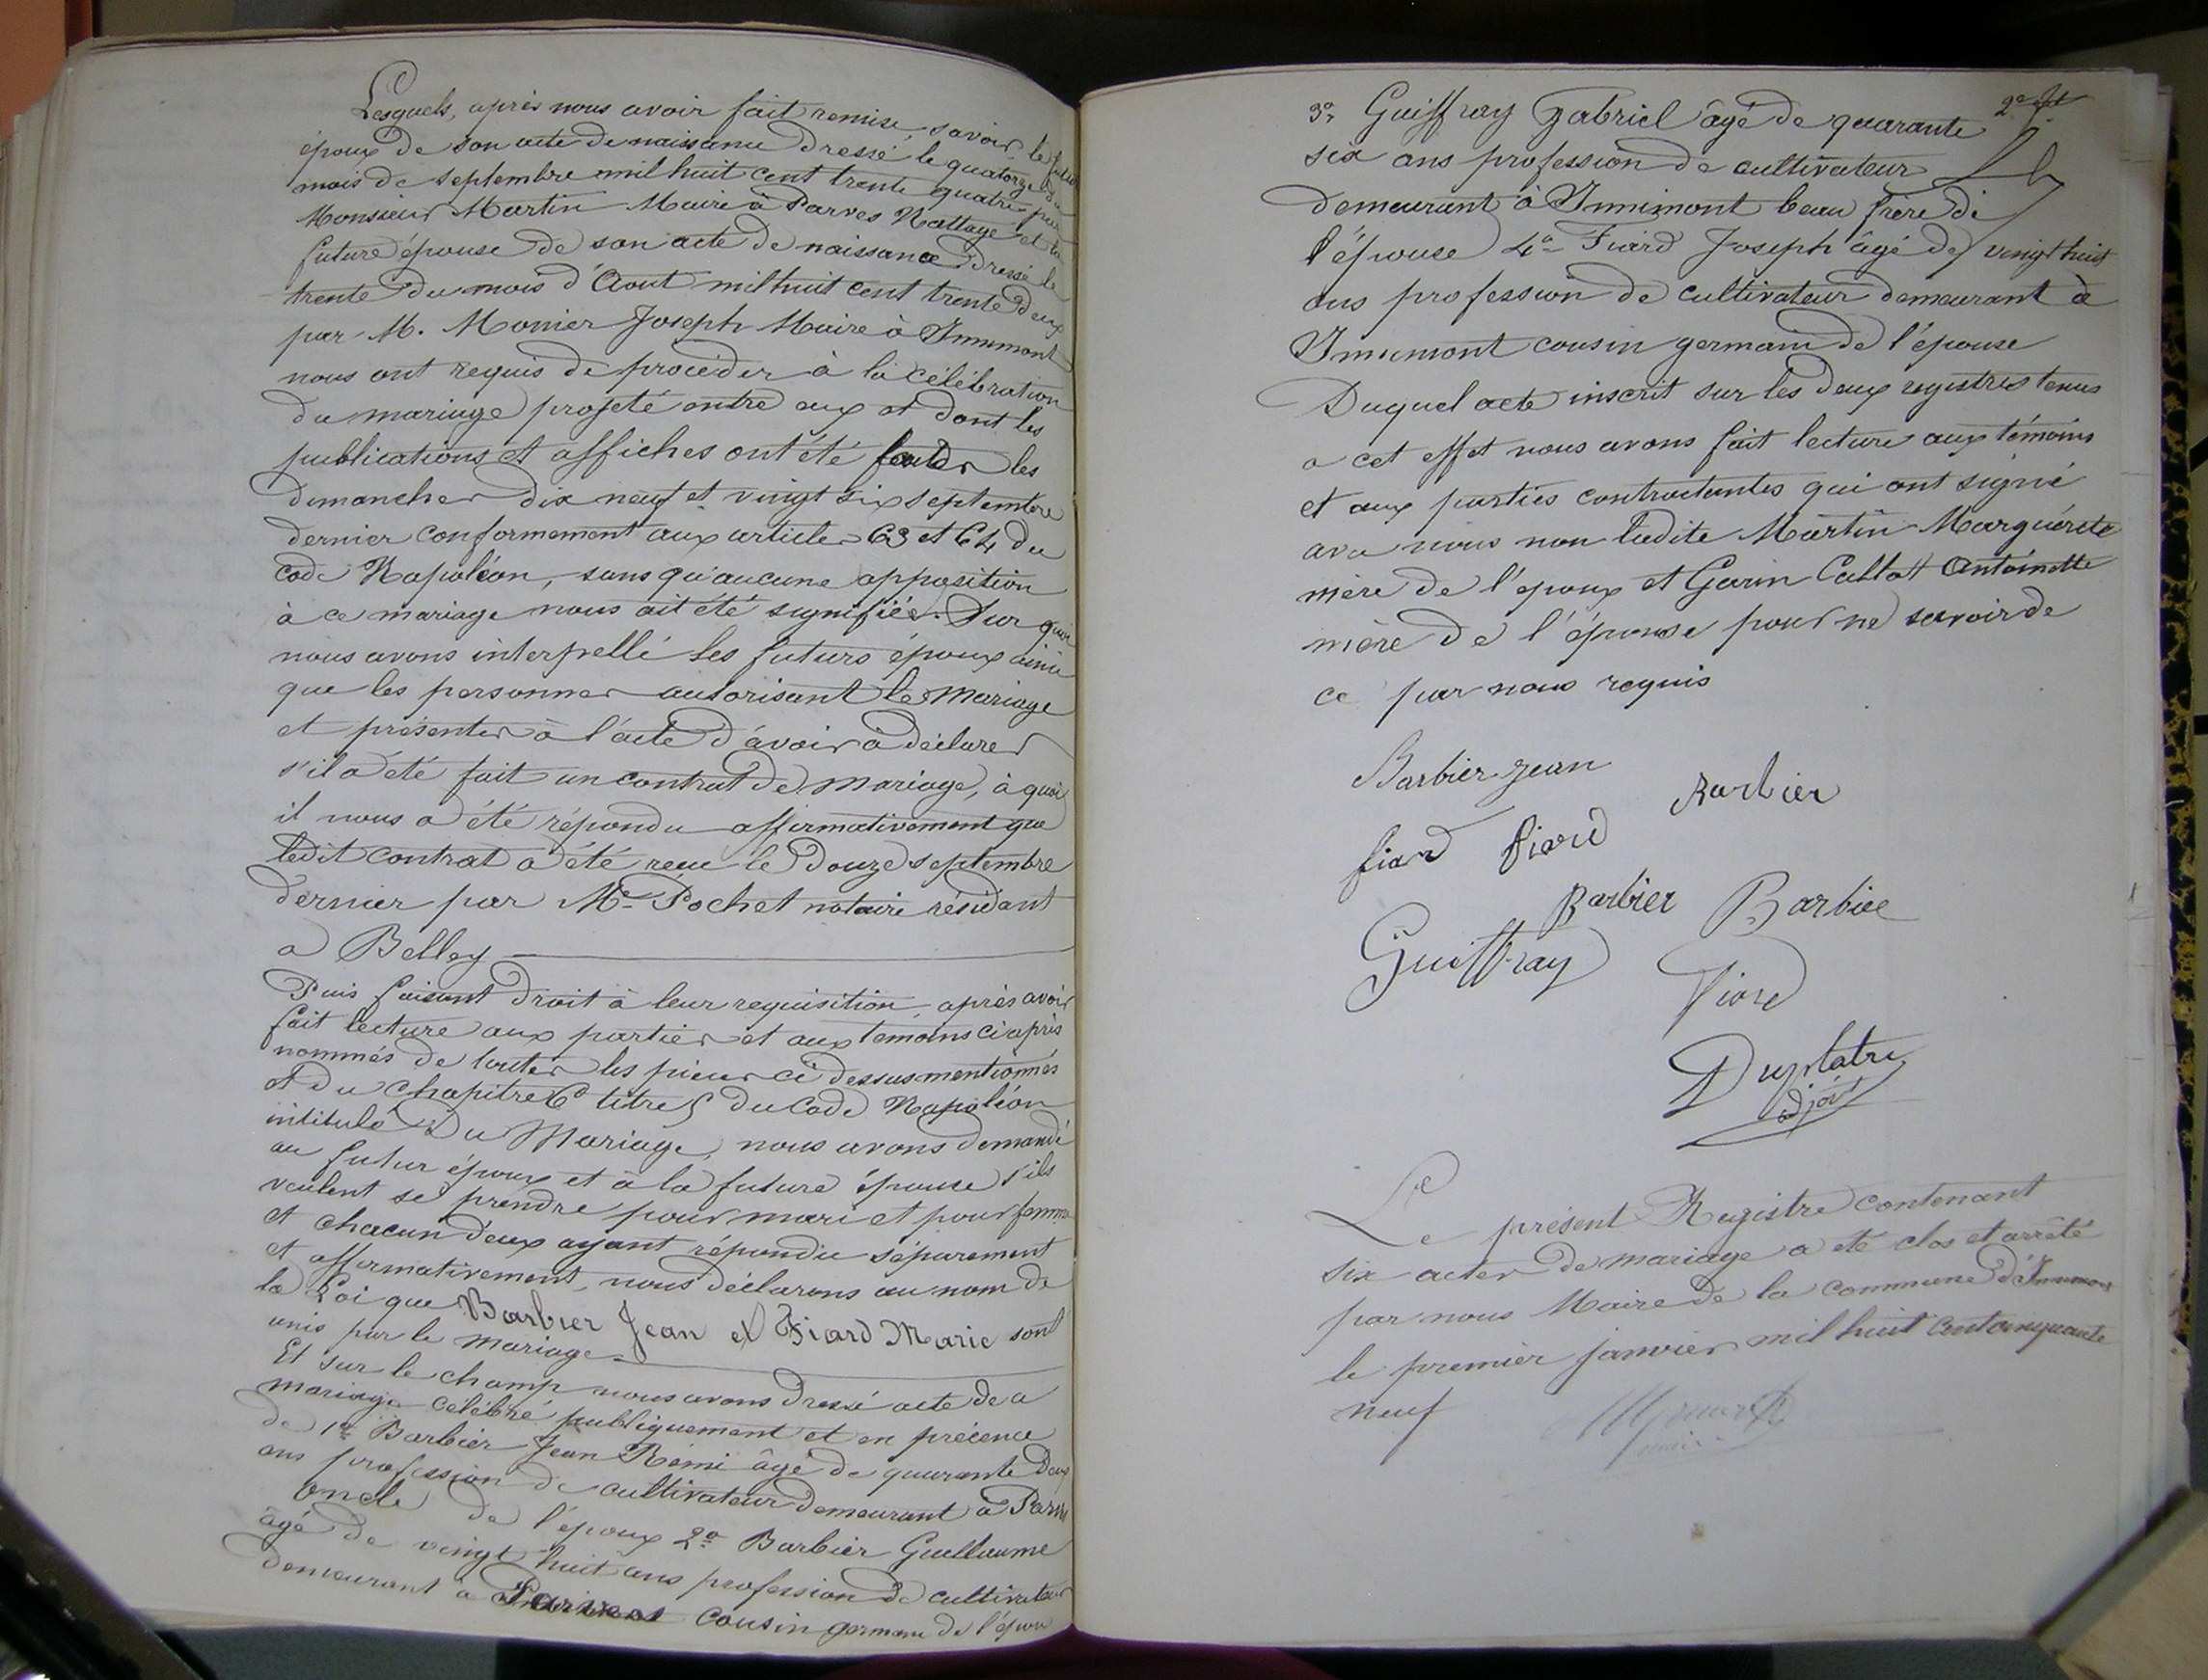 Lesquels, après nous avoir fait remise, savoir, le futur
époux de son acte de naissance dressé le quatorze du
mois de septembre mil huit cent trente quatre par
Monsieur Martin Maire à Parves Nattage et la
future épouse de son acte de naissance dressé le
trente du mois d'Aout mil huit cent trente deux
par M. Monier Joseph Maire à Innimont
nous ont requis de procéder à la célébration
du mariage projeté entre eux et dont les
publications et affiches ont été faites les
dimanches dix neuf et vingt six septembre
dernier conformement aux articles 63 et 64 du
code Napoléon, sans qu'aucune opposition
à ce mariage nous ait été signifiée. Sur quoi
nous avons interpellé les futurs époux ainsi
que les personnes autorisant le Mariage
et présentes à l'acte d'avoir à déclarer
s'il a été fait un contrat de mariage, à quoi
il nous a été répondu affirmativement que
ledit contrat a été reçu le douze septembre
dernier par Me Pochet notaire résidant
a Belley
Puis faisant droit à leur requisition, après avoir
fait lecture aux parties et aux temoins ci après
nommés de toutes les pièces ci dessus mentionnés
et du chapitre 6 titre 5 du Code Napoléon
intitulé Du Mariage, nous avons demandé
au futur époux et à la future épouse s'ils
veulent se prendre pour mari et pour femme
et chacun d'eux ayant répondu séparement
et affirmativement, nous déclarons au nom de
la Loi que Barbier Jean et Fiard Marie sont
unis par le mariage
Et sur le champ nous avons dressé acte de ce
mariage célébré publiquement et en présence
de 1º Barbier Jean Rémi âgé de quarante deux
ans profession de cultivateur demeurant à Parves
oncle de l'époux 2º Barbier Guillaume
âgé de vingt huit ans profession de cultivateur
demeurant à Parves cousin germain de l'époux
2e
3º Guiffray Gabriel âgé de quarante
six ans profession de cultivateur
demeurant à Innimont beau frère de
l'épouse 4º Fiard Joseph âgé de vingt huit
ans profession de cultivateur demeurant à
Innimont cousin germain de l'épouse
Duquel acte inscrit sur les deux registres tenus
a cet effet nous avons fait lecture aux témoins
et aux parties contractantes qui ont signé
avec nous non ladite Martin Marguérite
mère de l'époux et Garin Callot Antoinette
mère de l'épouse pour ne savoir de
ce par nous requis
Barbier Jean
Barbier
fiard fiard
Barbier Barbier
Guiffray
Fiard
Duplatre
adjoint
Le présent Registre contenant
six actes de mariage a eté clos et arrêté
par nous Maire de la commune d'Innimont
le premier janvier mil huit cent cinquante
neuf